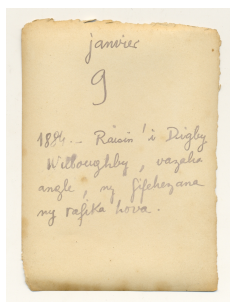 janvier
9
1884 - Raisin' i Digby
Willoughby, vazaha
angle, ny fifehezana
ny tafika hova.